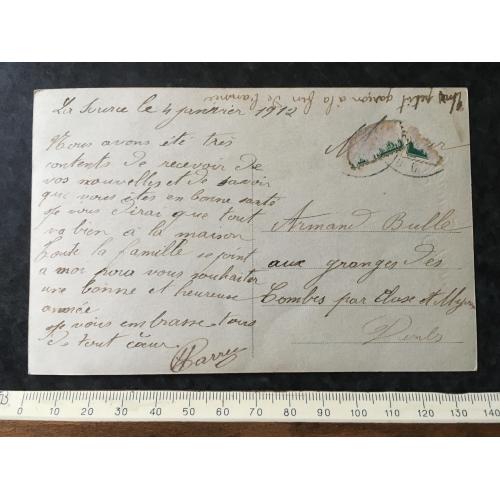 Un petit garçon à la fin de l'année
La Source le 4 janvrier 1912
Nous avons été très
contents de recevoir de
vos nouvelles et de savoir
que vous êtes en bonne santé
je vous dirai que tout
va bien à la maison
toute la famille se joint
a moi pour vous souhaiter
une bonne et heureuse
année
je vous embrasse tous
de tout cœur
Barrey
Armand Bulle
aux granges des
Combes par Cluse et Mijoux
Doubs
B 0 10 20 30 40 50 60 70 80 90 100 110 120 130 140